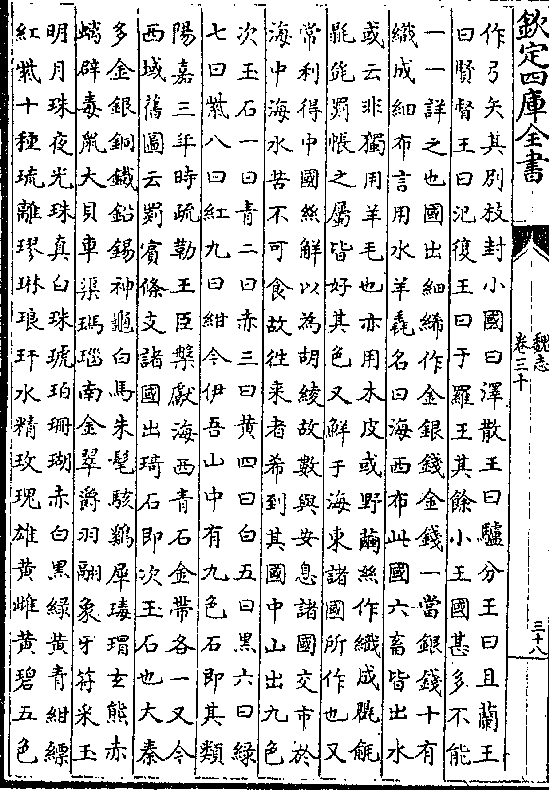 欽定四庫全書
魏志
卷三十
三十八
作弓矢其别枝封小國曰澤散王曰驢分王曰且蘭王
曰賢督王曰汜復王曰于羅王其餘小王國甚多不能
一一詳之也國出細絺作金銀錢金錢一當銀錢十有
織成細布言用水羊毳名曰海西布此國六畜皆出水
或云非獨用羊毛也亦用木皮或野繭絲作織成氍毹
毾㲪罽帳之屬皆好其色又鮮于海東諸國所作也又
常利得中國絲解以為胡綾故數與安息諸國交市於
海中海水苦不可食故往来者希到其國中山出九色
次玉石一曰青二曰赤三曰黄四曰白五曰黑六曰緑
七曰紫八曰紅九曰紺今伊吾山中有九色石即其類
陽嘉三年時疏勒王臣槃獻海西青石金帶各一又今
西域舊圖云罽賓條支諸國出琦石即次玉石也大秦
多金銀銅鐵鉛錫神龜白馬朱髦駭鷄犀瑇瑁玄熊赤
螭辟毒鼠大貝車渠瑪瑙南金翠爵羽翮象牙符采玉
明月珠夜光珠真白珠琥珀珊瑚赤白黑緑黄青紺縹
紅紫十種琉離璆琳琅玕水精玫瑰雄黄雌黄碧五色